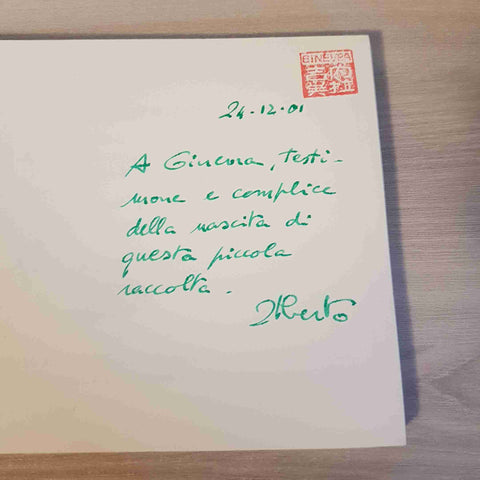 GINEVRA
24.12.01
A Ginevra, testi-
mone e complice
della nascita di
questa piccola
raccolta.
Alberto